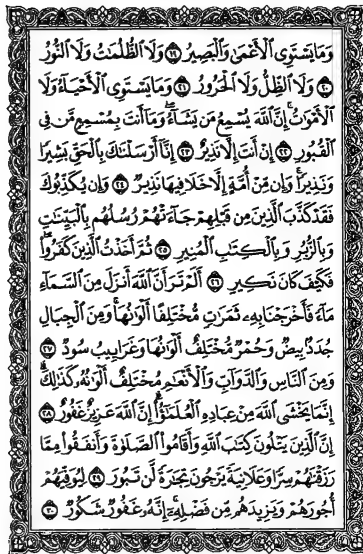 وَمَا يَسْتَوِي الْأَعْمَىٰ وَالْبَصِيرُ ١٩ وَلَا الظُّلُمَاتُ وَلَا النُّورُ
٢٠ وَلَا الظِّلُّ وَلَا الْحَرُورُ ٢١ وَمَا يَسْتَوِي الْأَحْيَاءُ وَلَا
الْأَمْوَاتُ ۚ إِنَّ اللَّهَ يُسْمِعُ مَن يَشَاءُ ۖ وَمَا أَنتَ بِمُسْمِعٍ مَّن فِي
الْقُبُورِ ٢٢ إِنْ أَنتَ إِلَّا نَذِيرٌ ٢٣ إِنَّا أَرْسَلْنَاكَ بِالْحَقِّ بَشِيرًا
وَنَذِيرًا ۚ وَإِن مِّنْ أُمَّةٍ إِلَّا خَلَا فِيهَا نَذِيرٌ ٢٤ وَإِن يُكَذِّبُوكَ
فَقَدْ كَذَّبَ الَّذِينَ مِن قَبْلِهِمْ جَاءَتْهُمْ رُسُلُهُم بِالْبَيِّنَاتِ
وَبِالزُّبُرِ وَبِالْكِتَابِ الْمُنِيرِ ٢٥ ثُمَّ أَخَذْتُ الَّذِينَ كَفَرُوا ۖ
فَكَيْفَ كَانَ نَكِيرِ ٢٦ أَلَمْ تَرَ أَنَّ اللَّهَ أَنزَلَ مِنَ السَّمَاءِ
مَاءً فَأَخْرَجْنَا بِهِ ثَمَرَاتٍ مُّخْتَلِفًا أَلْوَانُهَا ۚ وَمِنَ الْجِبَالِ
جُدَدٌ بِيضٌ وَحُمْرٌ مُّخْتَلِفٌ أَلْوَانُهَا وَغَرَابِيبُ سُودٌ ٢٧
وَمِنَ النَّاسِ وَالدَّوَابِّ وَالْأَنْعَامِ مُخْتَلِفٌ أَلْوَانُهُ كَذَٰلِكَ ۗ
إِنَّمَا يَخْشَى اللَّهَ مِنْ عِبَادِهِ الْعُلَمَاءُ ۗ إِنَّ اللَّهَ عَزِيزٌ غَفُورٌ ٢٨
إِنَّ الَّذِينَ يَتْلُونَ كِتَابَ اللَّهِ وَأَقَامُوا الصَّلَاةَ وَأَنفَقُوا مِمَّا
رَزَقْنَاهُمْ سِرًّا وَعَلَانِيَةً يَرْجُونَ تِجَارَةً لَّن تَبُورَ ٢٩ لِيُوَفِّيَهُمْ
أُجُورَهُمْ وَيَزِيدَهُم مِّن فَضْلِهِ ۚ إِنَّهُ غَفُورٌ شَكُورٌ ٣٠